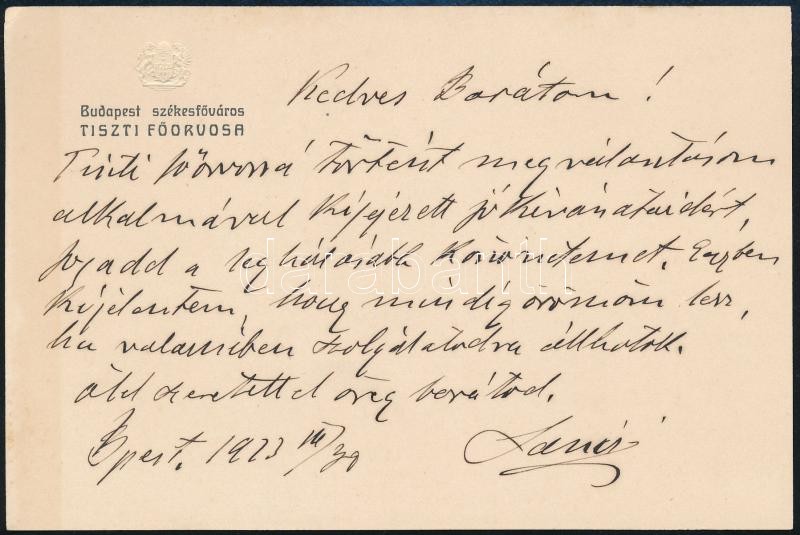 Budapest székesfőváros
TISZTI FŐORVOSA
Kedves Barátom!
Tiszti főorvossá történt megválasztásom
alkalmával kifejezett jókívánataidért,
fogadd a leghálásabb köszönetemet. Egyben
kijelentem, hogy mindig örömöm lesz,
ha valamiben szolgálatodra állhatok.
Ölel szeretettel öreg barátod.
Bpest, 1923 III/30
darabanth